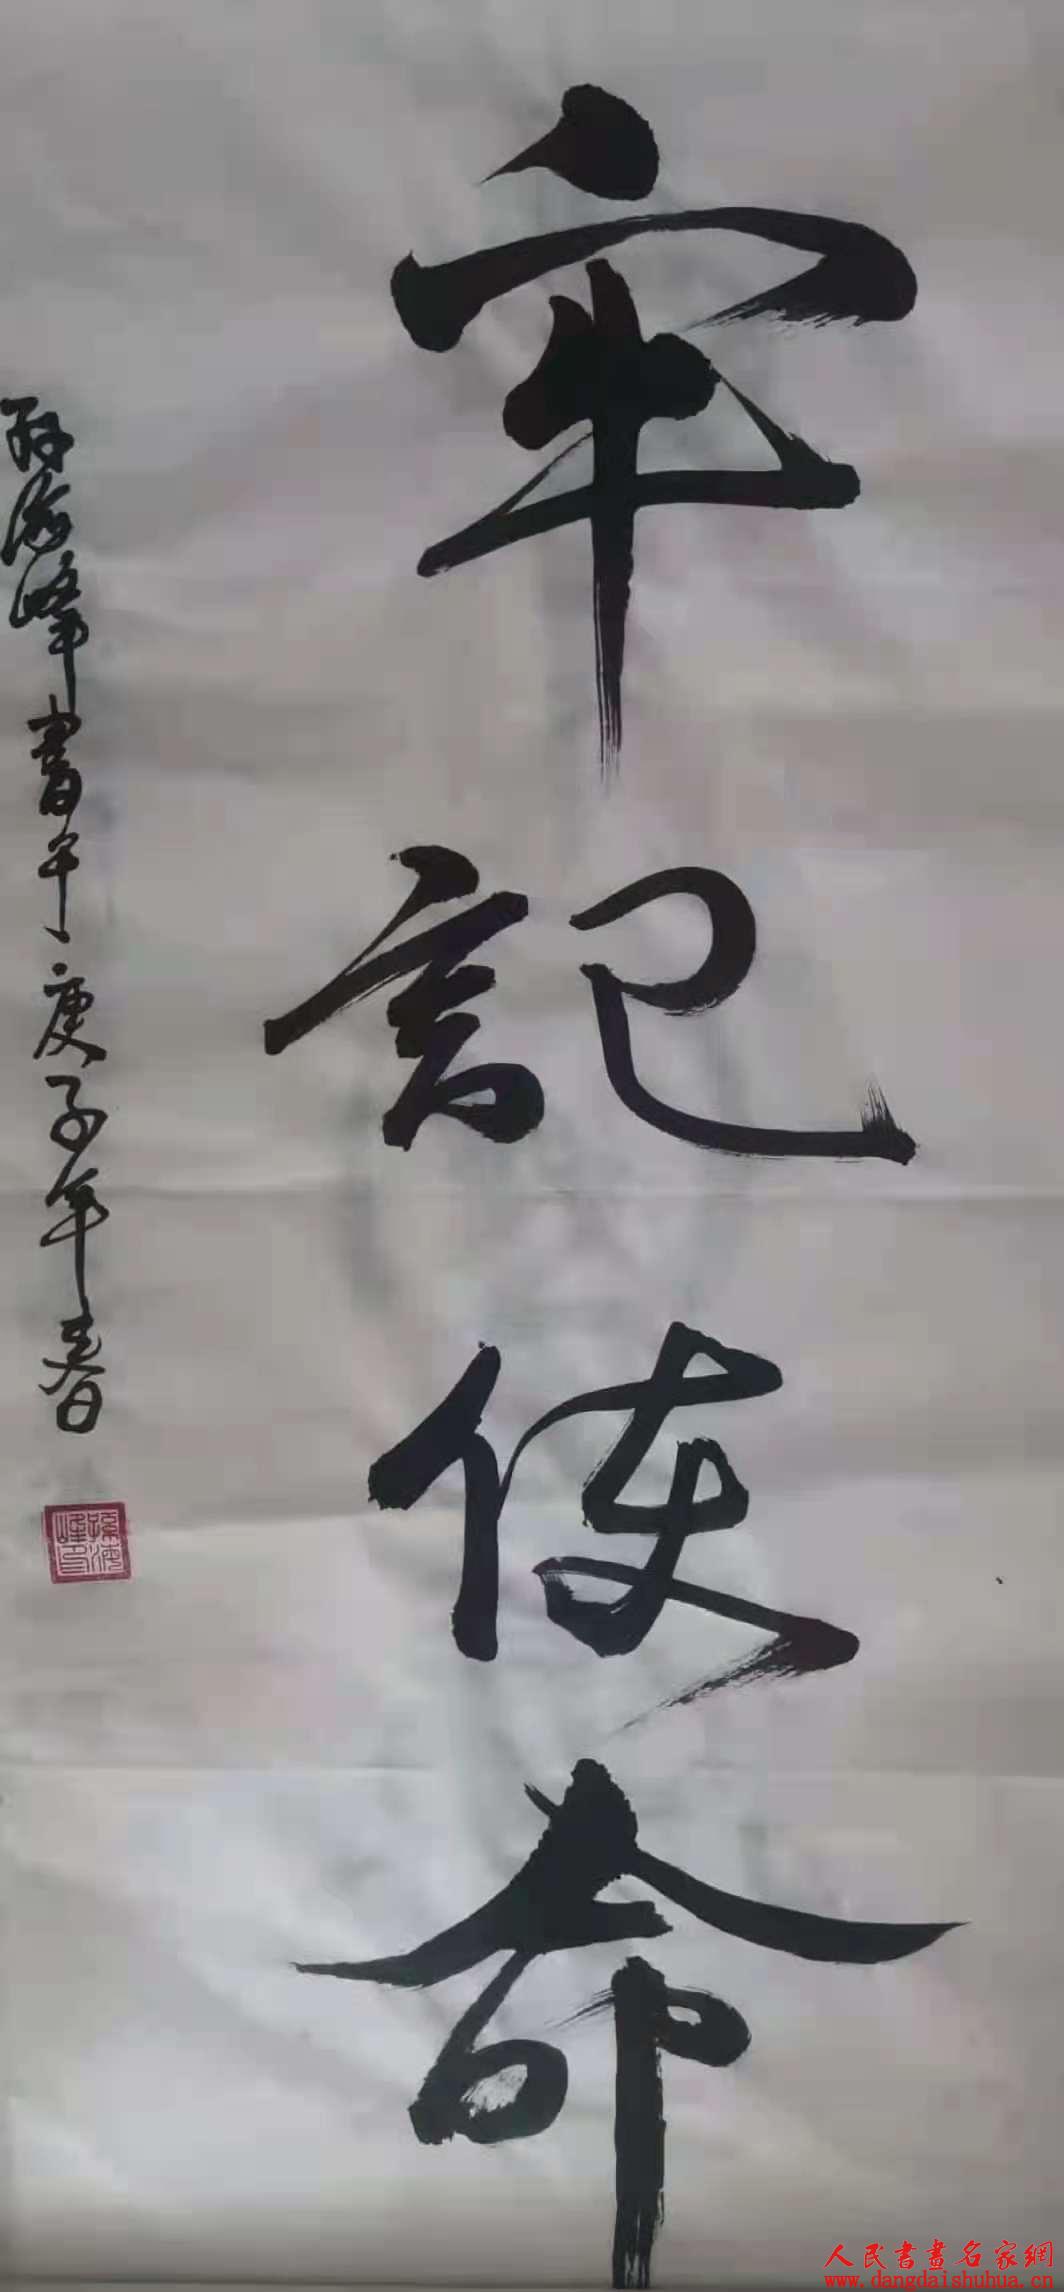 牢記使命
孫海峰書于庚子年春
孫海峰印
人民書畫名家網
www.dangdaishuhua.cn